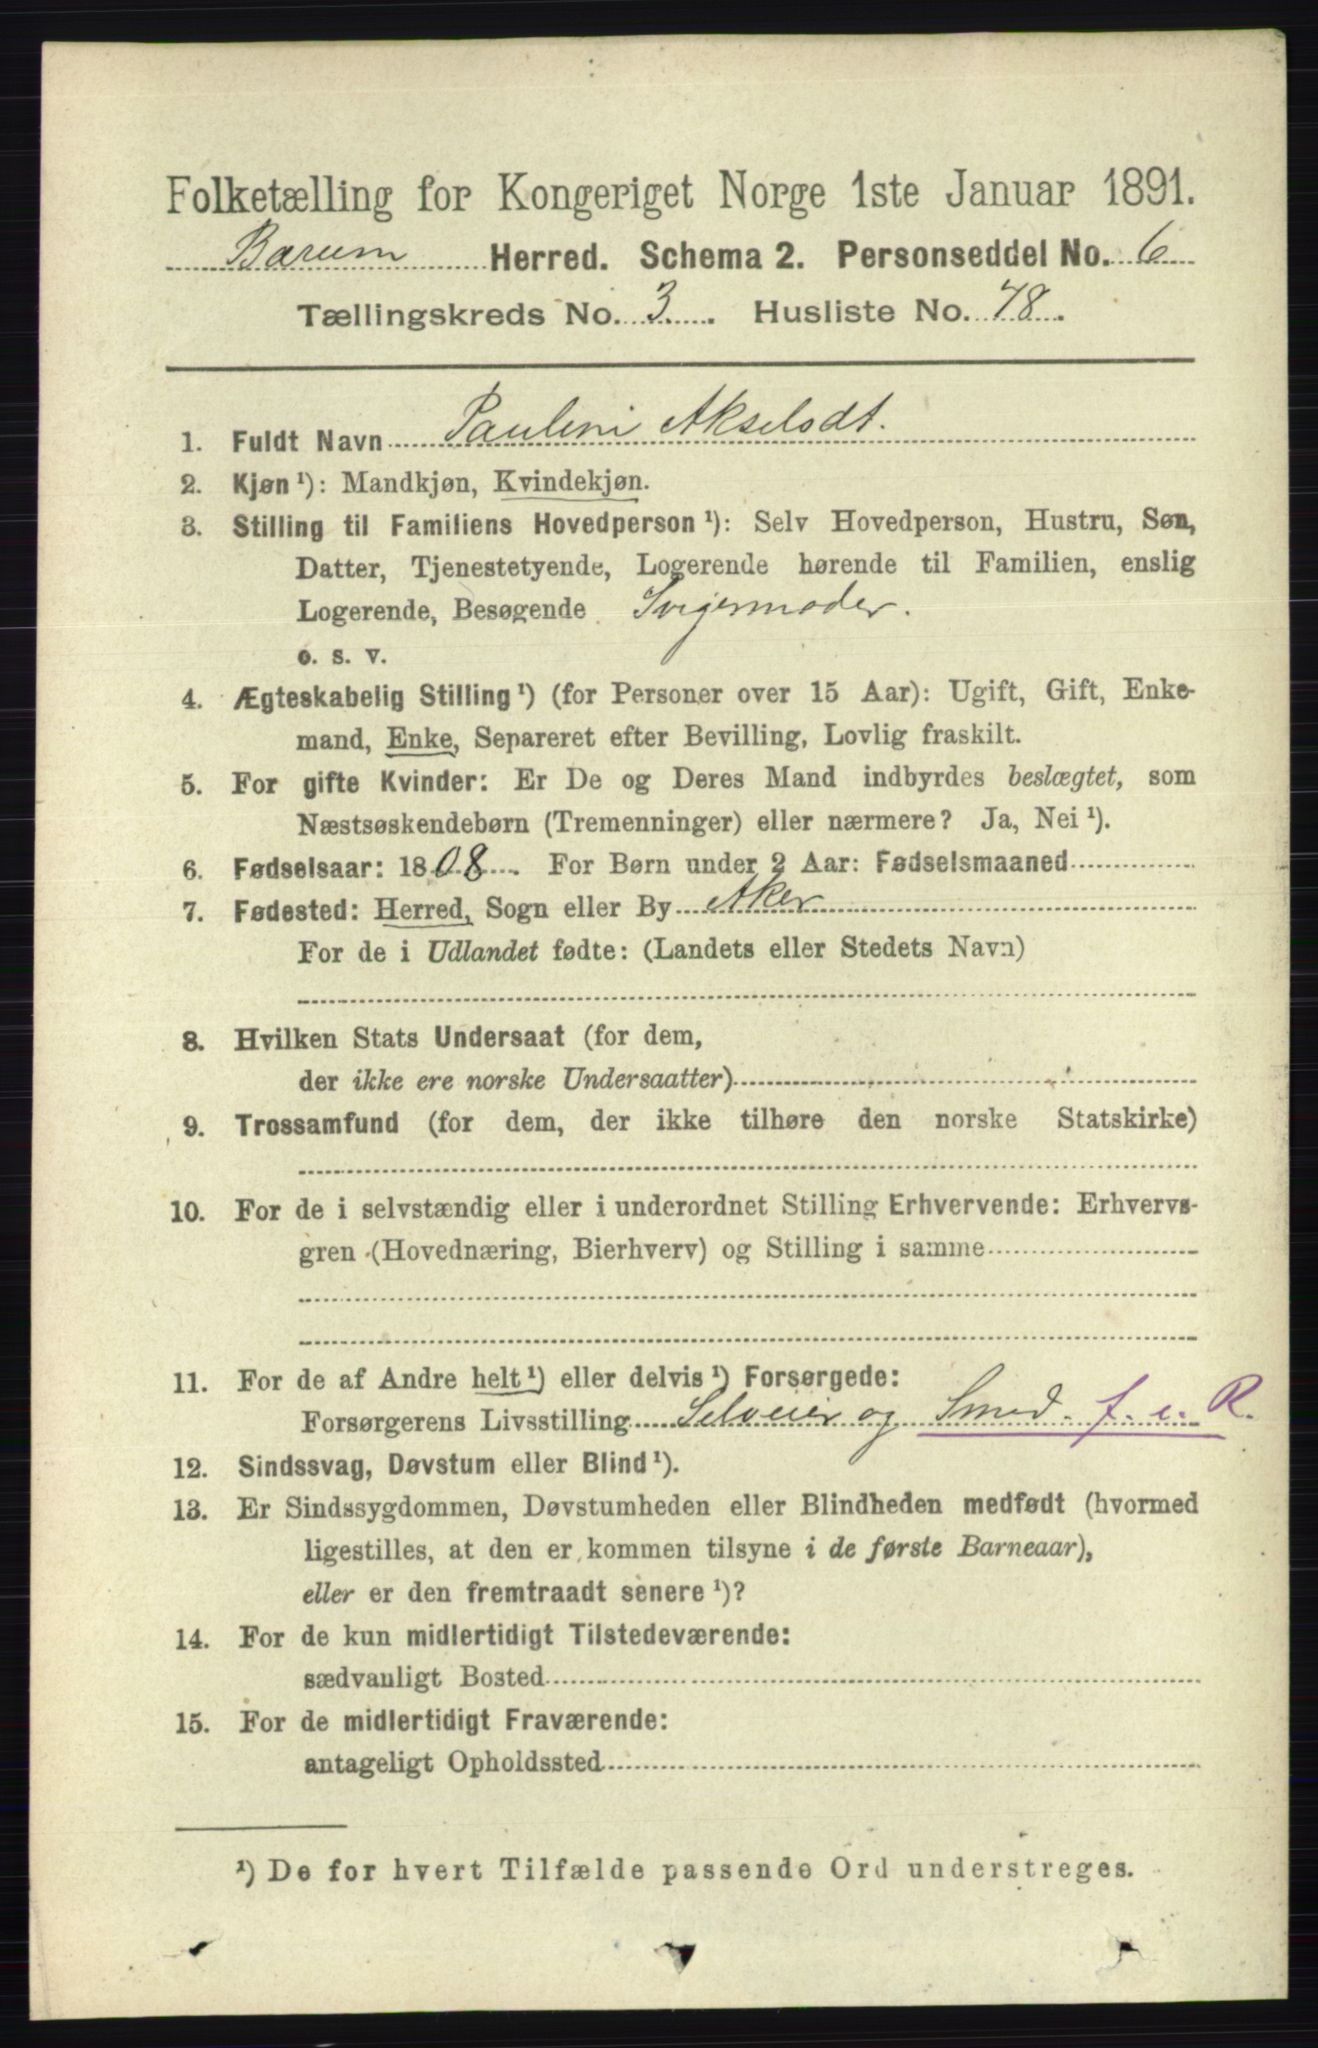 Folketælling for Kongeriget Norge 1ste Januar 1891.
Bærum Herred. Schema 2. Personseddel No. 6
Tællingskreds No. 3. Husliste No. 78.
1. Fuldt Navn Pauline Akselsdt.
2. Kjøn ¹): Mandkjøn, Kvindekjøn.
3. Stilling til Familiens Hovedperson ¹): Selv Hovedperson, Hustru, Søn,
Datter, Tjenestetyende, Logerende hørende til Familien, enslig
Logerende, Besøgende Svigermoder.
o. s. v.
4. Ægteskabelig Stilling ¹) (for Personer over 15 Aar): Ugift, Gift, Enke-
mand, Enke, Separeret efter Bevilling, Lovlig fraskilt.
5. For gifte Kvinder: Er De og Deres Mand indbyrdes beslægtet, som
Næstsøskendebørn (Tremenninger) eller nærmere? Ja, Nei ¹).
6. Fødselsaar: 1808. For Børn under 2 Aar: Fødselsmaaned
7. Fødested: Herred, Sogn eller By Aker
For de i Udlandet fødte: (Landets eller Stedets Navn)
8. Hvilken Stats Undersaat (for dem,
der ikke ere norske Undersaatter)
9. Trossamfund (for dem, der ikke tilhøre den norske Statskirke)
10. For de i selvstændig eller i underordnet Stilling Erhvervende: Erhvervs-
gren (Hovednæring, Bierhverv) og Stilling i samme
11. For de af Andre helt ¹) eller delvis ¹) Forsørgede:
Forsørgerens Livsstilling Selveier og Smed. f. e. R.
12. Sindssvag, Døvstum eller Blind ¹).
13. Er Sindssygdommen, Døvstumheden eller Blindheden medfødt (hvormed
ligestilles, at den er kommen tilsyne i de første Barneaar),
eller er den fremtraadt senere ¹)?
14. For de kun midlertidigt Tilstedeværende:
sædvanligt Bosted
15. For de midlertidigt Fraværende:
antageligt Opholdssted
¹) De for hvert Tilfælde passende Ord understreges.